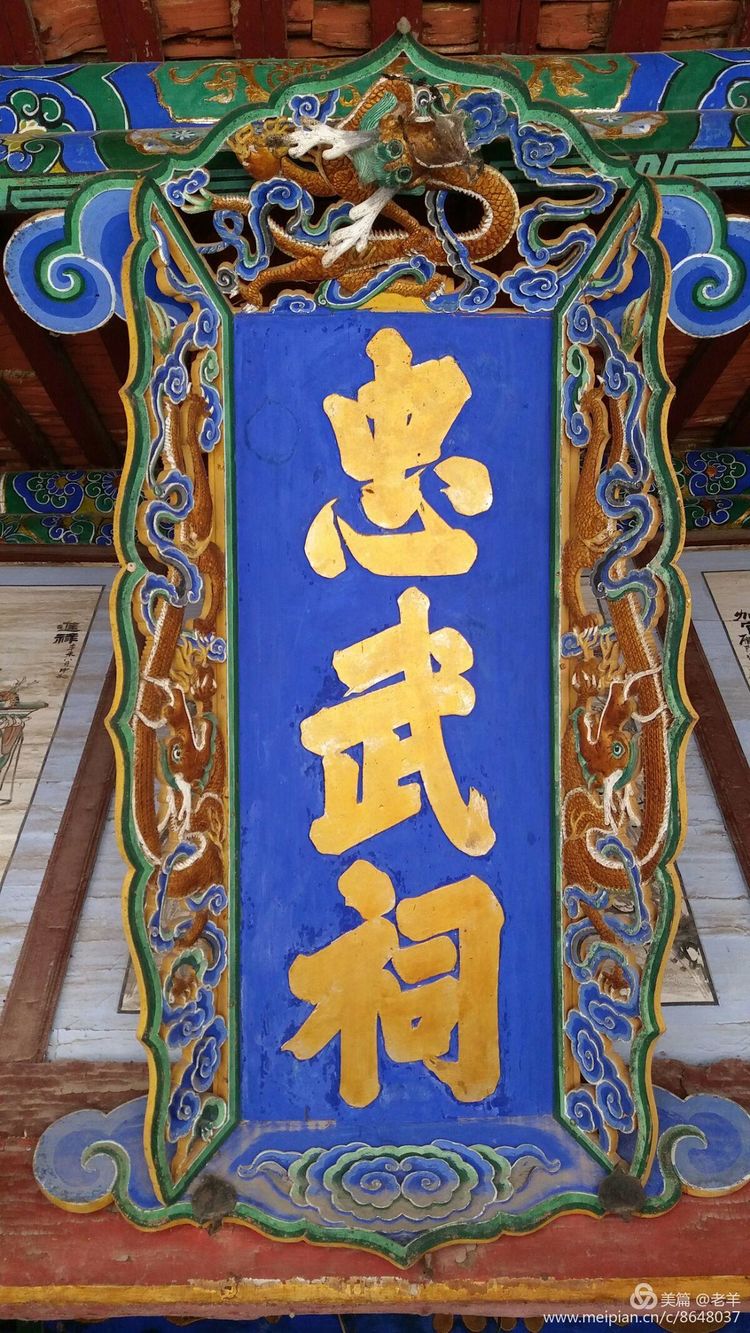 忠武祠
進祿
美篇 @老羊
www.meipian.cn/c/8648037